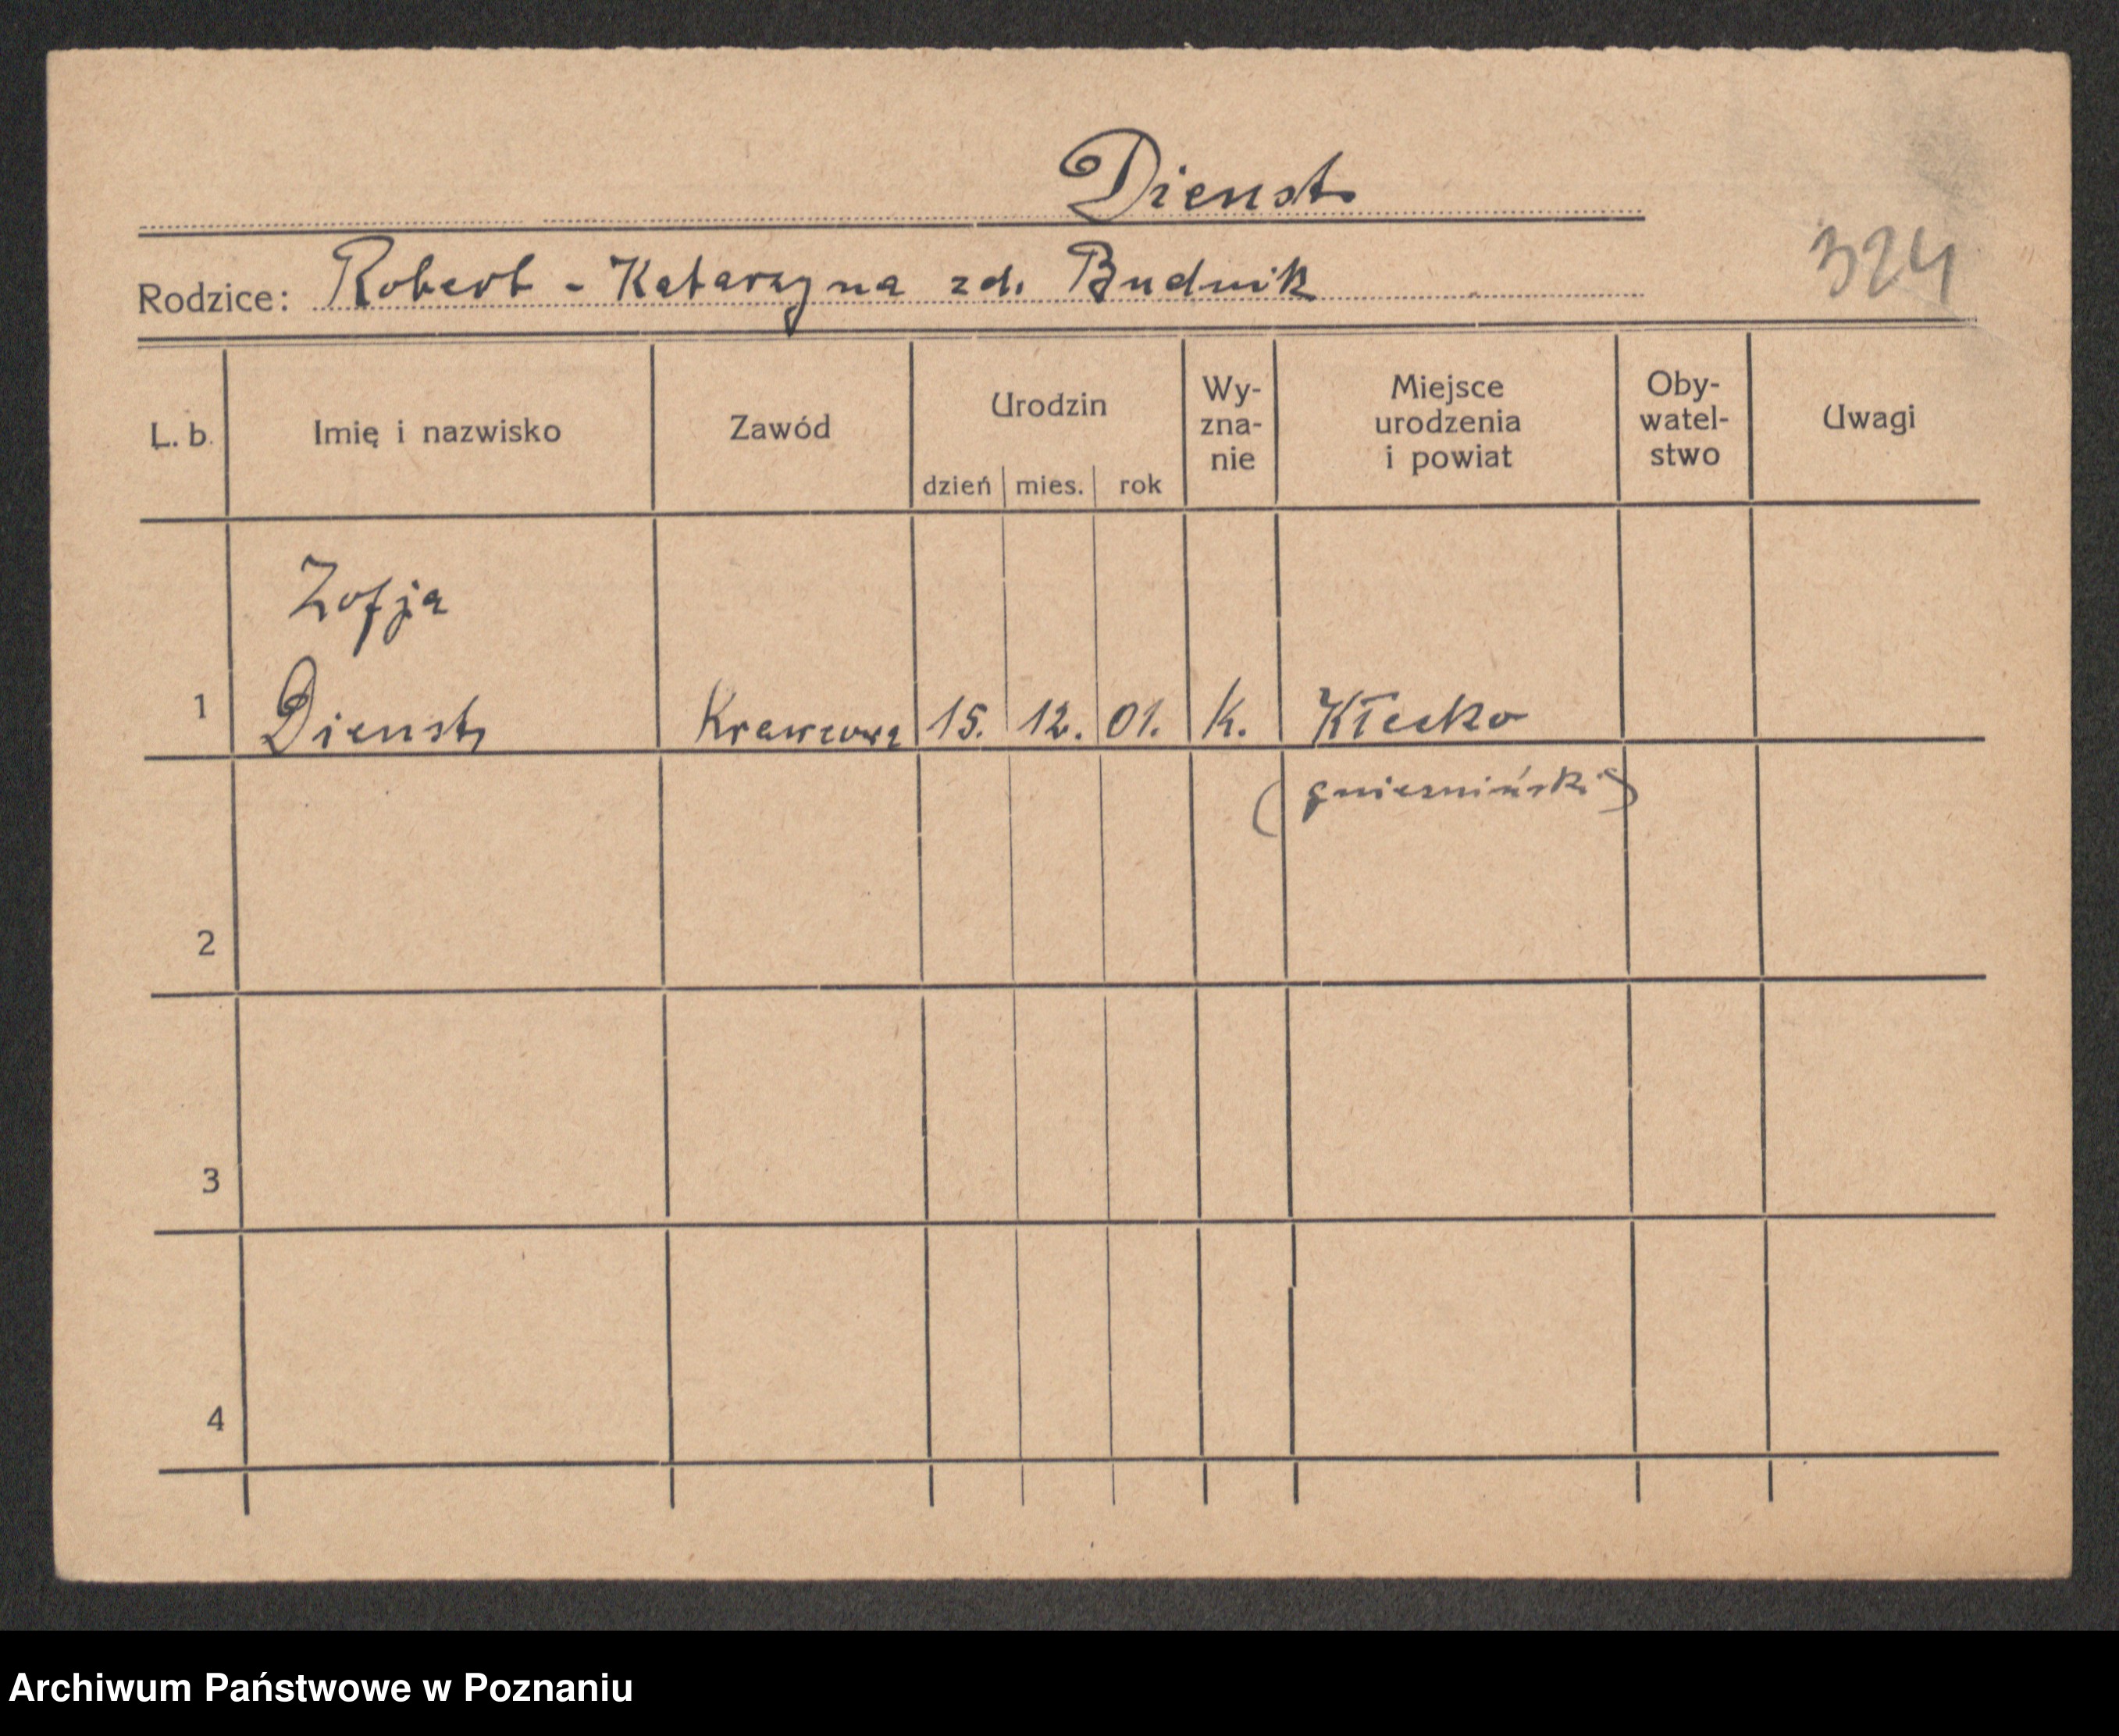 Dienst
324
Rodzice: Robert - Katarzyna zd. Budnik
L. b. Imię i nazwisko Zawód Urodzin dzień mies. rok Wy-zna-nie Miejsce urodzenia i powiat Oby-watel-stwo Uwagi
Zofja
1 Dienst Krawcowa 15. 12. 01. K. Kłecko
(gnieźniński)
2
3
4
Archiwum Państwowe w Poznaniu